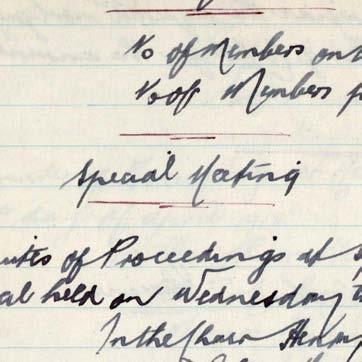 No of Members on
No of Members
Special Meeting
utes of Proceedings at
al held on Wednesday
In the Chair Henry